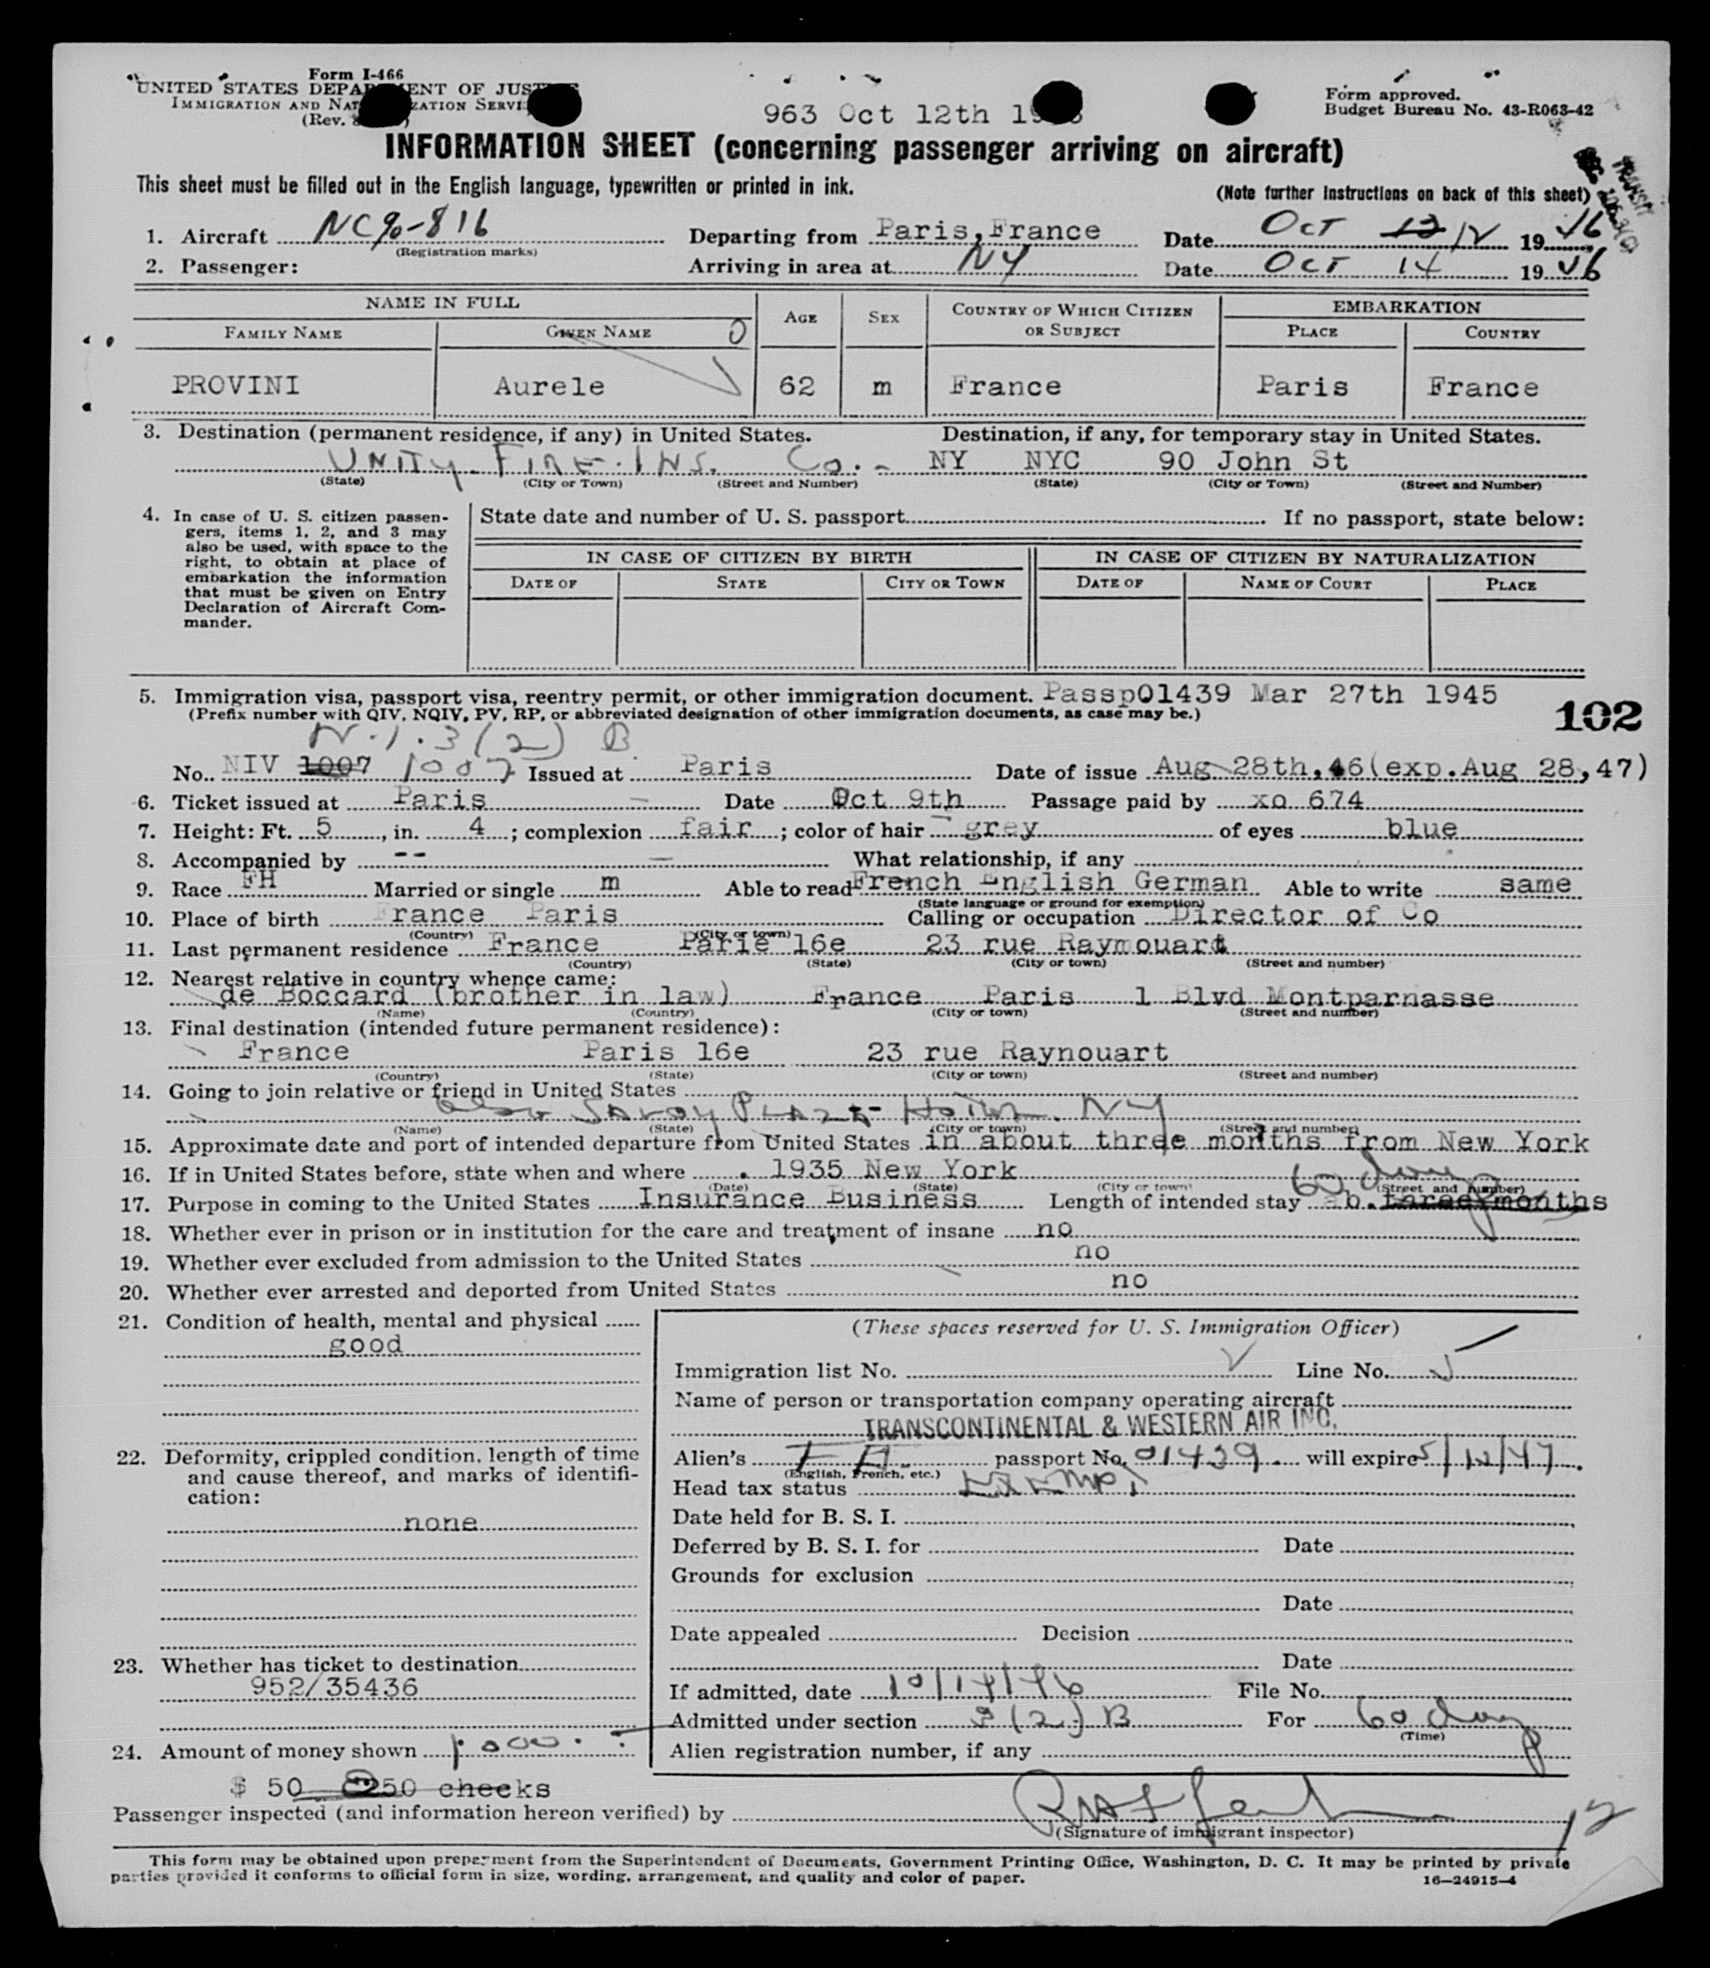 Form I-466
UNITED STATES DEPARTMENT OF JUSTICE
IMMIGRATION AND NATURALIZATION SERVICE
(Rev.
963 Oct 12th
Form approved.
Budget Bureau No. 43-R063-42
INFORMATION SHEET (concerning passenger arriving on aircraft)
This sheet must be filled out in the English language, typewritten or printed in ink.
(Note further instructions on back of this sheet)
TRANSIT
1. Aircraft NC90-816 Departing from Paris, France Date Oct 13 12 1946
(Registration marks)
2. Passenger: Arriving in area at NY Date Oct 14 1946
NAME IN FULL AGE SEX COUNTRY OF WHICH CITIZEN OR SUBJECT EMBARKATION
FAMILY NAME GIVEN NAME PLACE COUNTRY
PROVINI Aurele 62 m France Paris France
3. Destination (permanent residence, if any) in United States. Destination, if any, for temporary stay in United States.
UNITY FIRE INS. Co. - NY NYC 90 John St
(State) (City or Town) (Street and Number) (State) (City or Town) (Street and Number)
4. In case of U. S. citizen passen-
gers, items 1, 2, and 3 may
also be used, with space to the
right, to obtain at place of
embarkation the information
that must be given on Entry
Declaration of Aircraft Com-
mander.
State date and number of U. S. passport If no passport, state below:
IN CASE OF CITIZEN BY BIRTH IN CASE OF CITIZEN BY NATURALIZATION
DATE OF STATE CITY OR TOWN DATE OF NAME OF COURT PLACE
5. Immigration visa, passport visa, reentry permit, or other immigration document. Passp01439 Mar 27th 1945
(Prefix number with QIV, NQIV, PV, RP, or abbreviated designation of other immigration documents, as case may be.)
102
N.I. 3(2) B
No. NIV 1007 1007 Issued at Paris Date of issue Aug 28th.46(exp.Aug 28,47)
6. Ticket issued at Paris Date Oct 9th Passage paid by xo 674
7. Height: Ft. 5, in. 4; complexion fair; color of hair grey of eyes blue
8. Accompanied by -- What relationship, if any
9. Race FH Married or single m Able to read French English German Able to write same
(State language or ground for exemption)
10. Place of birth France Paris Calling or occupation Director of Co
(Country) (City or town)
11. Last permanent residence France Parie 16e 23 rue Raymouart
(Country) (State) (City or town) (Street and number)
12. Nearest relative in country whence came:
de Boccard (brother in law) France Paris 1 Blvd Montparnasse
(Name) (Country) (City or town) (Street and number)
13. Final destination (intended future permanent residence):
France Paris 16e 23 rue Raynouart
(Country) (State) (City or town) (Street and number)
14. Going to join relative or friend in United States
SAVOY PLAZA HOTEL NY
(Name) (State) (City or town) (Street and number)
15. Approximate date and port of intended departure from United States in about three months from New York
16. If in United States before, state when and where 1935 New York
(Date) (State) (City or town) (Street and number)
60 days
17. Purpose in coming to the United States Insurance Business Length of intended stay ab. three months
18. Whether ever in prison or in institution for the care and treatment of insane no
19. Whether ever excluded from admission to the United States no
20. Whether ever arrested and deported from United States no
21. Condition of health, mental and physical
good
22. Deformity, crippled condition, length of time
and cause thereof, and marks of identifi-
cation:
none
23. Whether has ticket to destination
952/35436
24. Amount of money shown 1000.
$ 50 250 checks
(These spaces reserved for U. S. Immigration Officer)
Immigration list No. Line No.
Name of person or transportation company operating aircraft
TRANSCONTINENTAL & WESTERN AIR INC.
Alien's FH passport No. 01439 will expire 5/12/47.
(English, French, etc.)
Head tax status Exempt
Date held for B. S. I.
Deferred by B. S. I. for Date
Grounds for exclusion
Date
Date appealed Decision
Date
If admitted, date 10/14/46 File No.
Admitted under section 3(2) B For 60 days
(Time)
Alien registration number, if any
Passenger inspected (and information hereon verified) by
(Signature of immigrant inspector)
12
This form may be obtained upon prepayment from the Superintendent of Documents, Government Printing Office, Washington, D. C. It may be printed by private
parties provided it conforms to official form in size, wording, arrangement, and quality and color of paper.
16—24915-4